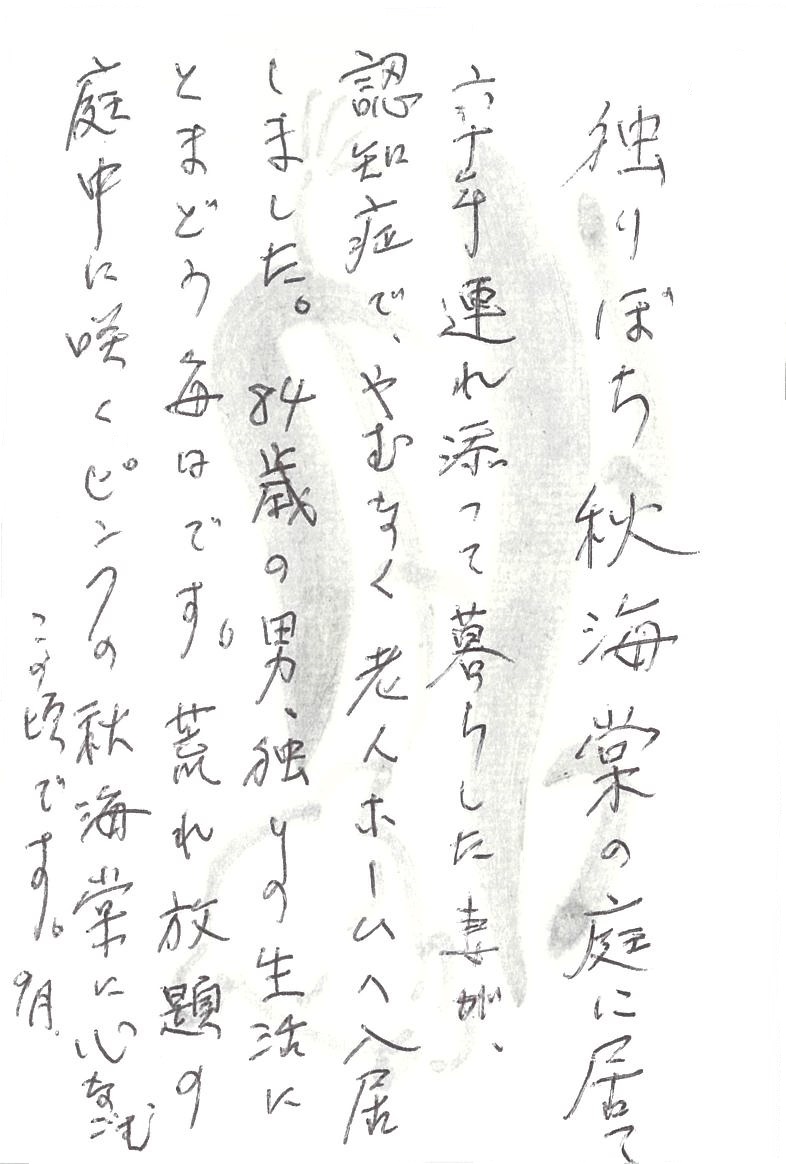 独りぼち秋海棠の庭に居て
六十年連れ添って暮らした妻が、
認知症で、やむなく老人ホームへ入居
しました。84歳の男、独りの生活に
とまどう毎日です。荒れ放題の
庭中に咲くピンクの秋海棠に心なごむ
この頃です。9月.